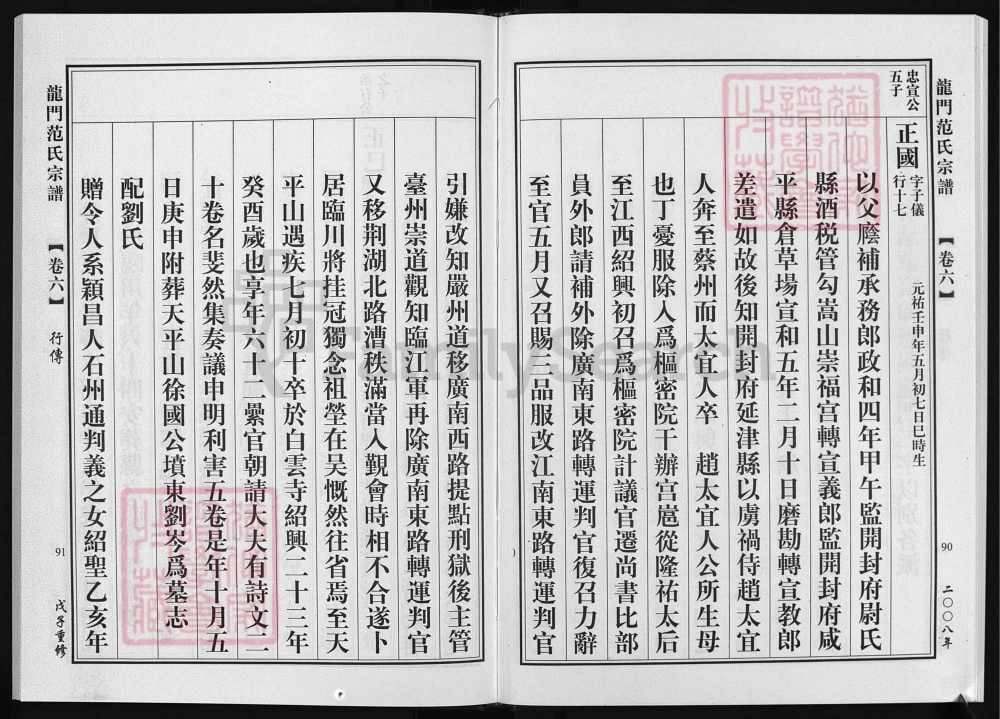 龍門范氏宗譜 【卷六】 90 二〇〇八年
忠宣公
五子
正國 字子儀
行十七 元祐壬申年五月初七日巳時生
以父廕補承務郎政和四年甲午監開封府尉氏
縣酒税管勾嵩山崇福宫轉宣義郎監開封府咸
平縣倉草場宣和五年二月十日磨勘轉宣教郎
差遣如故後知開封府延津縣以虜禍侍趙太宜
人奔至蔡州而太宜人卒 趙太宜人公所生母
也丁憂服除入爲樞密院干辦宫邕從隆祐太后
至江西紹興初召爲樞密院計議官遷尚書比部
員外郎請補外除廣南東路轉運判官復召力辭
至官五月又召賜三品服改江南東路轉運判官
引嫌改知嚴州道移廣南西路提點刑獄後主管
臺州崇道觀知臨江軍再除廣南東路轉運判官
又移荆湖北路漕秩滿當入覲會時相不合遂卜
居臨川將挂冠獨念祖塋在吴慨然往省焉至天
平山遇疾七月初十卒於白雲寺紹興二十三年
癸酉歲也享年六十二纍官朝請大夫有詩文二
十卷名斐然集奏議申明利害五卷是年十月五
日庚申附葬天平山徐國公墳東劉岑爲墓志
配劉氏
贈令人系穎昌人石州通判義之女紹聖乙亥年
龍門范氏宗譜 【卷六】 行傳 91 戊子重修
FamilySearch